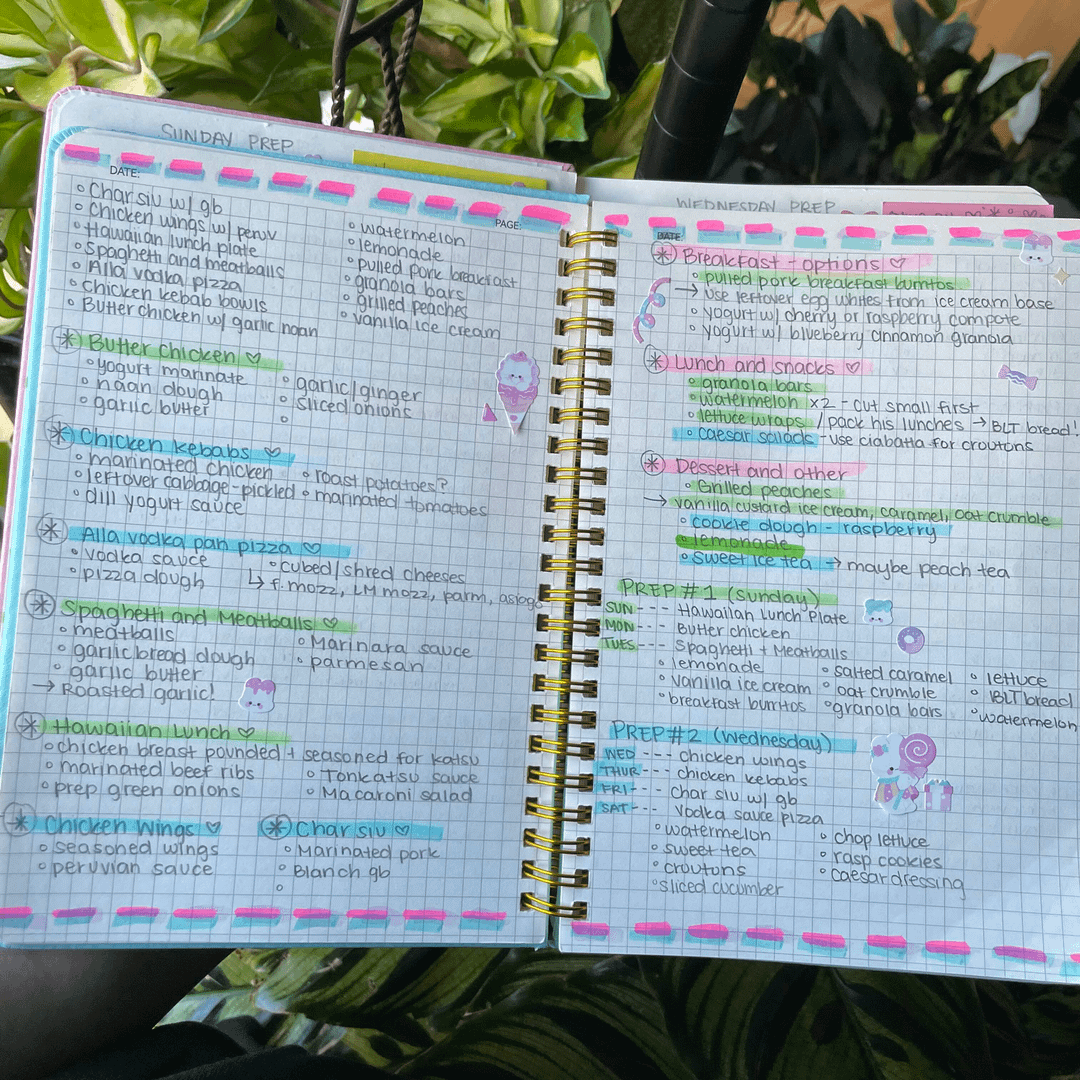 SUNDAY PREP
DATE:
PAGE:
Char siu w/ gb
Chicken wings w/ peruv
Hawaiian lunch plate
Spaghetti and meatballs
Alla vodka pizza
Chicken kebab bowls
Butter chicken w/ garlic naan
watermelon
lemonade
pulled pork breakfast
granola bars
grilled peaches
vanilla ice cream
Butter chicken ♡
yogurt marinate
naan dough
garlic butter
garlic/ginger
sliced onions
Chicken kebabs ♡
marinated chicken
leftover cabbage-pickled
dill yogurt sauce
roast potatoes?
marinated tomatoes
Alla vodka pan pizza ♡
vodka sauce
pizza dough
cubed/shred cheeses
↳ f. mozz, LM mozz, parm, asiago
Spaghetti and Meatballs ♡
meatballs
garlic bread dough
garlic butter
→ Roasted garlic!
Marinara sauce
parmesan
Hawaiian Lunch ♡
chicken breast pounded + seasoned for katsu
marinated beef ribs
prep green onions
Tonkatsu sauce
Macaroni salad
Chicken Wings ♡
seasoned wings
peruvian sauce
Char siu ♡
Marinated pork
Blanch gb
WEDNESDAY PREP
DATE:
Breakfast - options ♡
pulled pork breakfast burritos
→ Use leftover egg whites from ice cream base
yogurt w/ cherry or raspberry compote
yogurt w/ blueberry cinnamon granola
Lunch and snacks ♡
granola bars
watermelon x2 - cut small first
lettuce wraps / pack his lunches → BLT bread!
caesar salads - use ciabatta for croutons
Dessert and other
Grilled peaches
→ vanilla custard ice cream, caramel, oat crumble
cookie dough - raspberry
lemonade
sweet ice tea → maybe peach tea
PREP #1 (Sunday)
SUN --- Hawaiian Lunch Plate
MON --- Butter chicken
TUES --- Spaghetti + Meatballs
lemonade
vanilla ice cream
breakfast burritos
salted caramel
oat crumble
granola bars
lettuce
BLT bread
watermelon
PREP #2 (Wednesday)
WED --- chicken wings
THUR --- chicken kebabs
FRI --- char siu w/ gb
SAT --- vodka sauce pizza
watermelon
sweet tea
croutons
sliced cucumber
chop lettuce
rasp cookies
caesar dressing